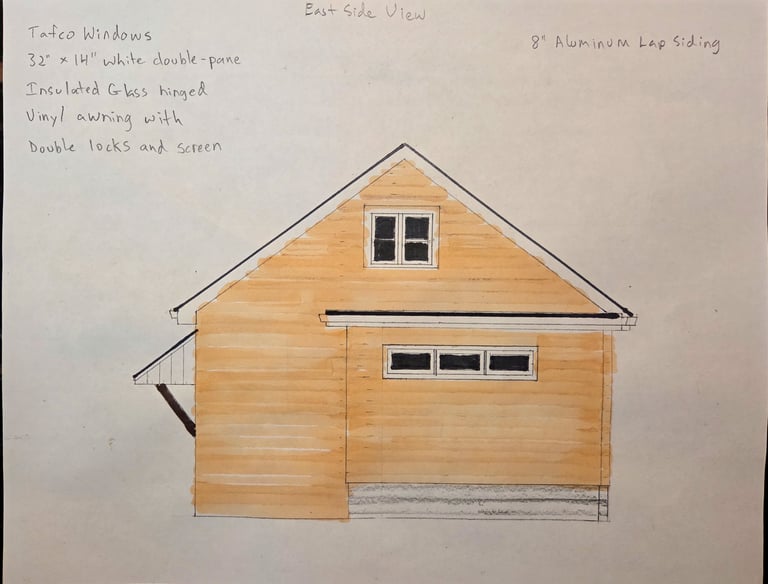 East Side View
Tafco Windows
32" x 14" white double-pane
Insulated Glass hinged
Vinyl awning with
Double locks and screen
8" Aluminum Lap Siding